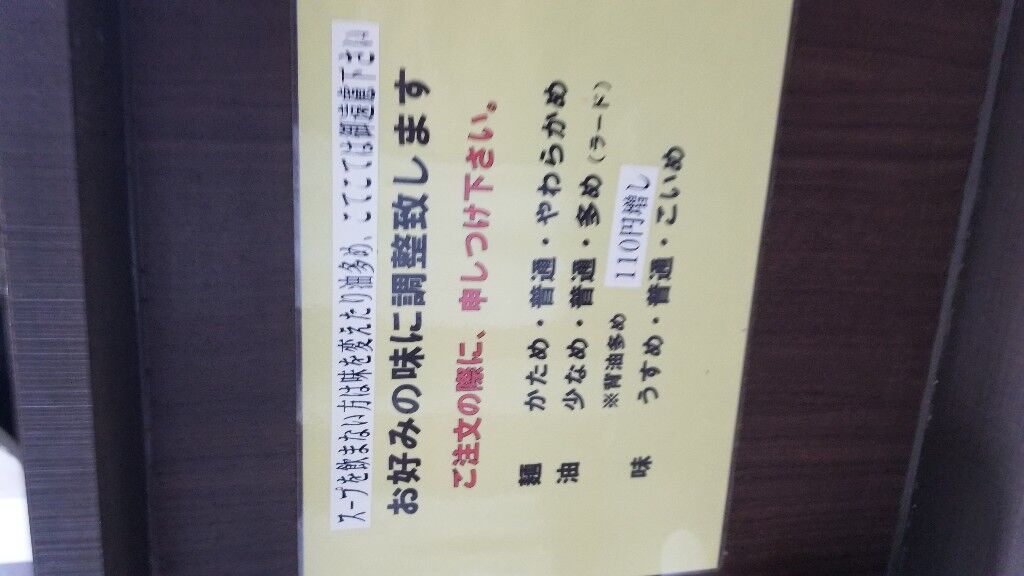 スープを飲まない方は味を変えたり油多め、こてこては御遠慮下さい
お好みの味に調整致します
ご注文の際に、申しつけ下さい。
麺 かため・普通・やわらかめ
油 少なめ・普通・多め(ラード)
※背油多め 110円増し
味 うすめ・普通・こいめ